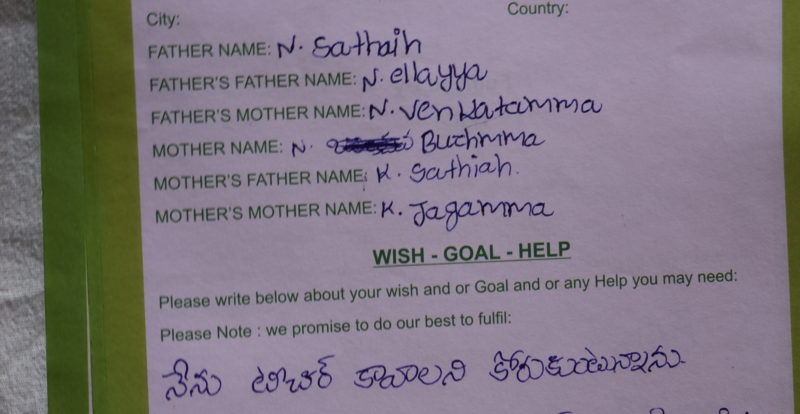 City: Country:
FATHER NAME: N. Sathaih
FATHER'S FATHER NAME: N. ellayya
FATHER'S MOTHER NAME: N. Venkatamma
MOTHER NAME: N. Buchmma
MOTHER'S FATHER NAME: K. Sathiah.
MOTHER'S MOTHER NAME: K. Jagamma
WISH - GOAL - HELP
Please write below about your wish and or Goal and or any Help you may need:
Please Note : we promise to do our best to fulfil:
నేను టీచర్ కావాలని కోరుకుంటున్నాను.